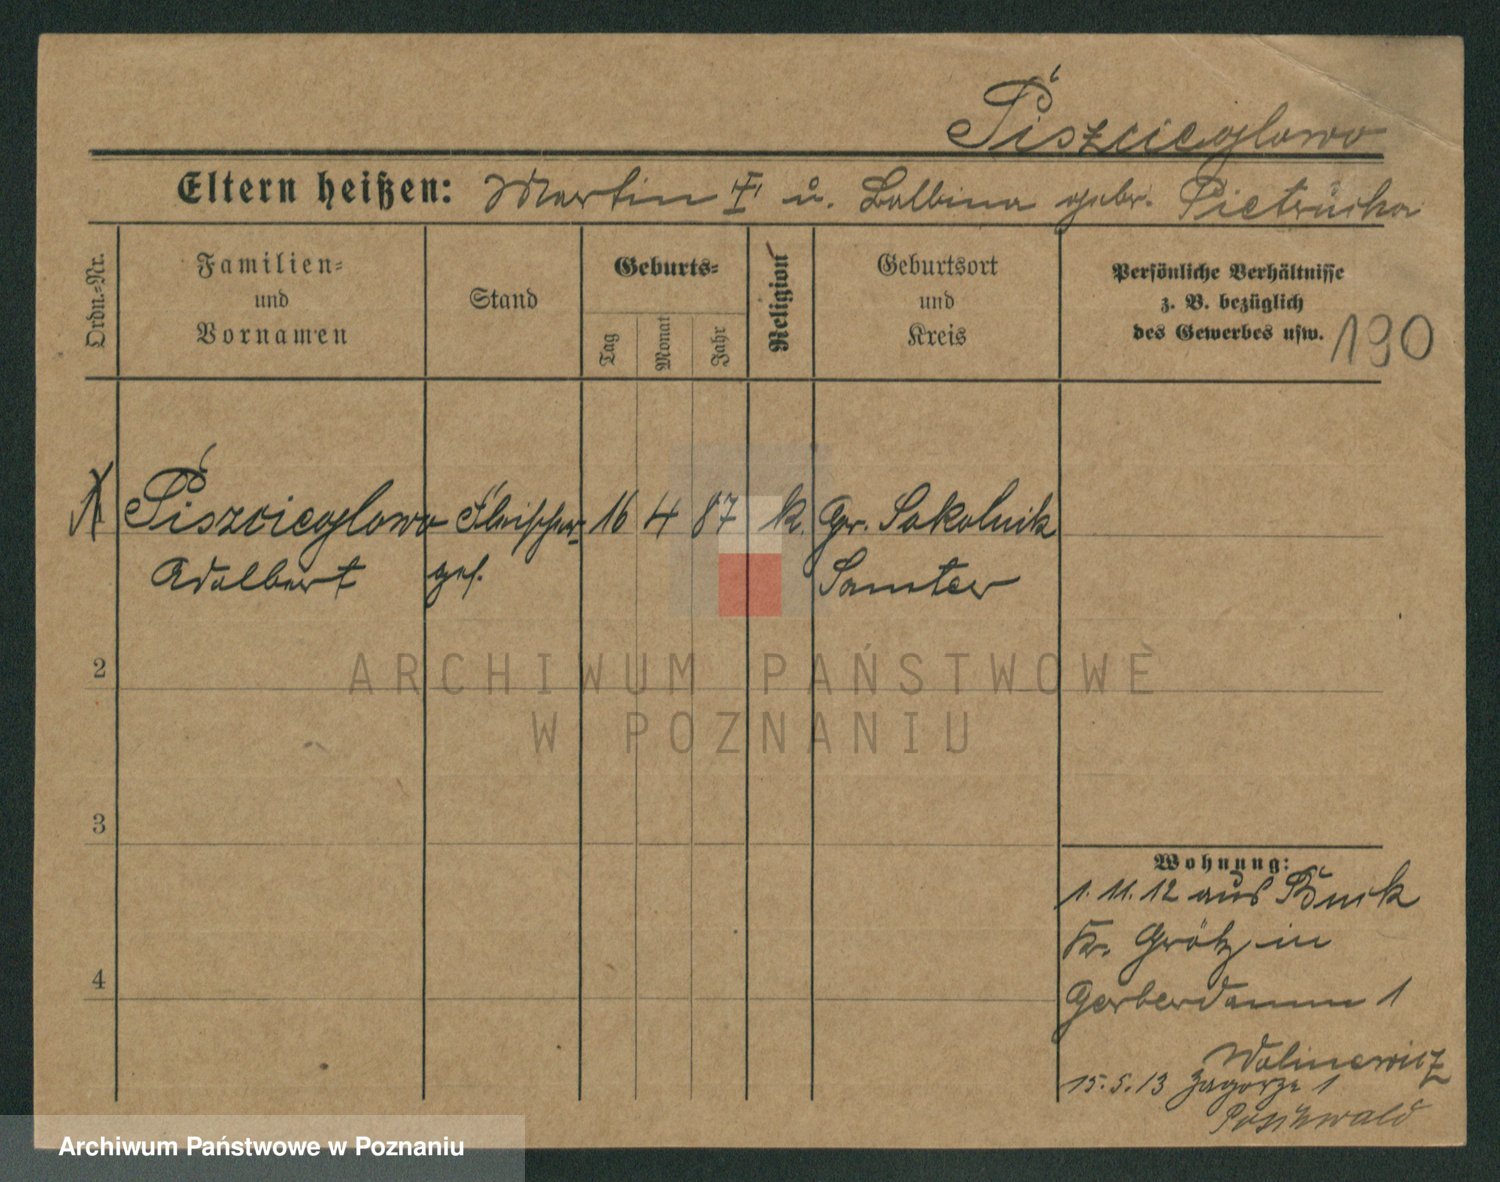 Piszcieglowo
Eltern heißen: Martin † u. Balbina gebr. Pietrucha
Ordn.-Nr.
Familien-
und
Vornamen
Stand
Geburts-
Tag
Monat
Jahr
Religion
Geburtsort
und
Kreis
Persönliche Verhältnisse
z. B. bezüglich
des Gewerbes usw.
190
1 Piszcieglowo Fleischer- 16 4 87 k. Gr. Sokolnik
Adalbert ges. Samter
2
3
4
ARCHIWUM PAŃSTWOWE
W POZNANIU
Wohnung:
1. 11. 12 aus Buk
Kr. Grätz in
Gerberdamm 1
Wolinewicz
15. 5. 13 Zagorze 1
Archiwum Państwowe w Poznaniu